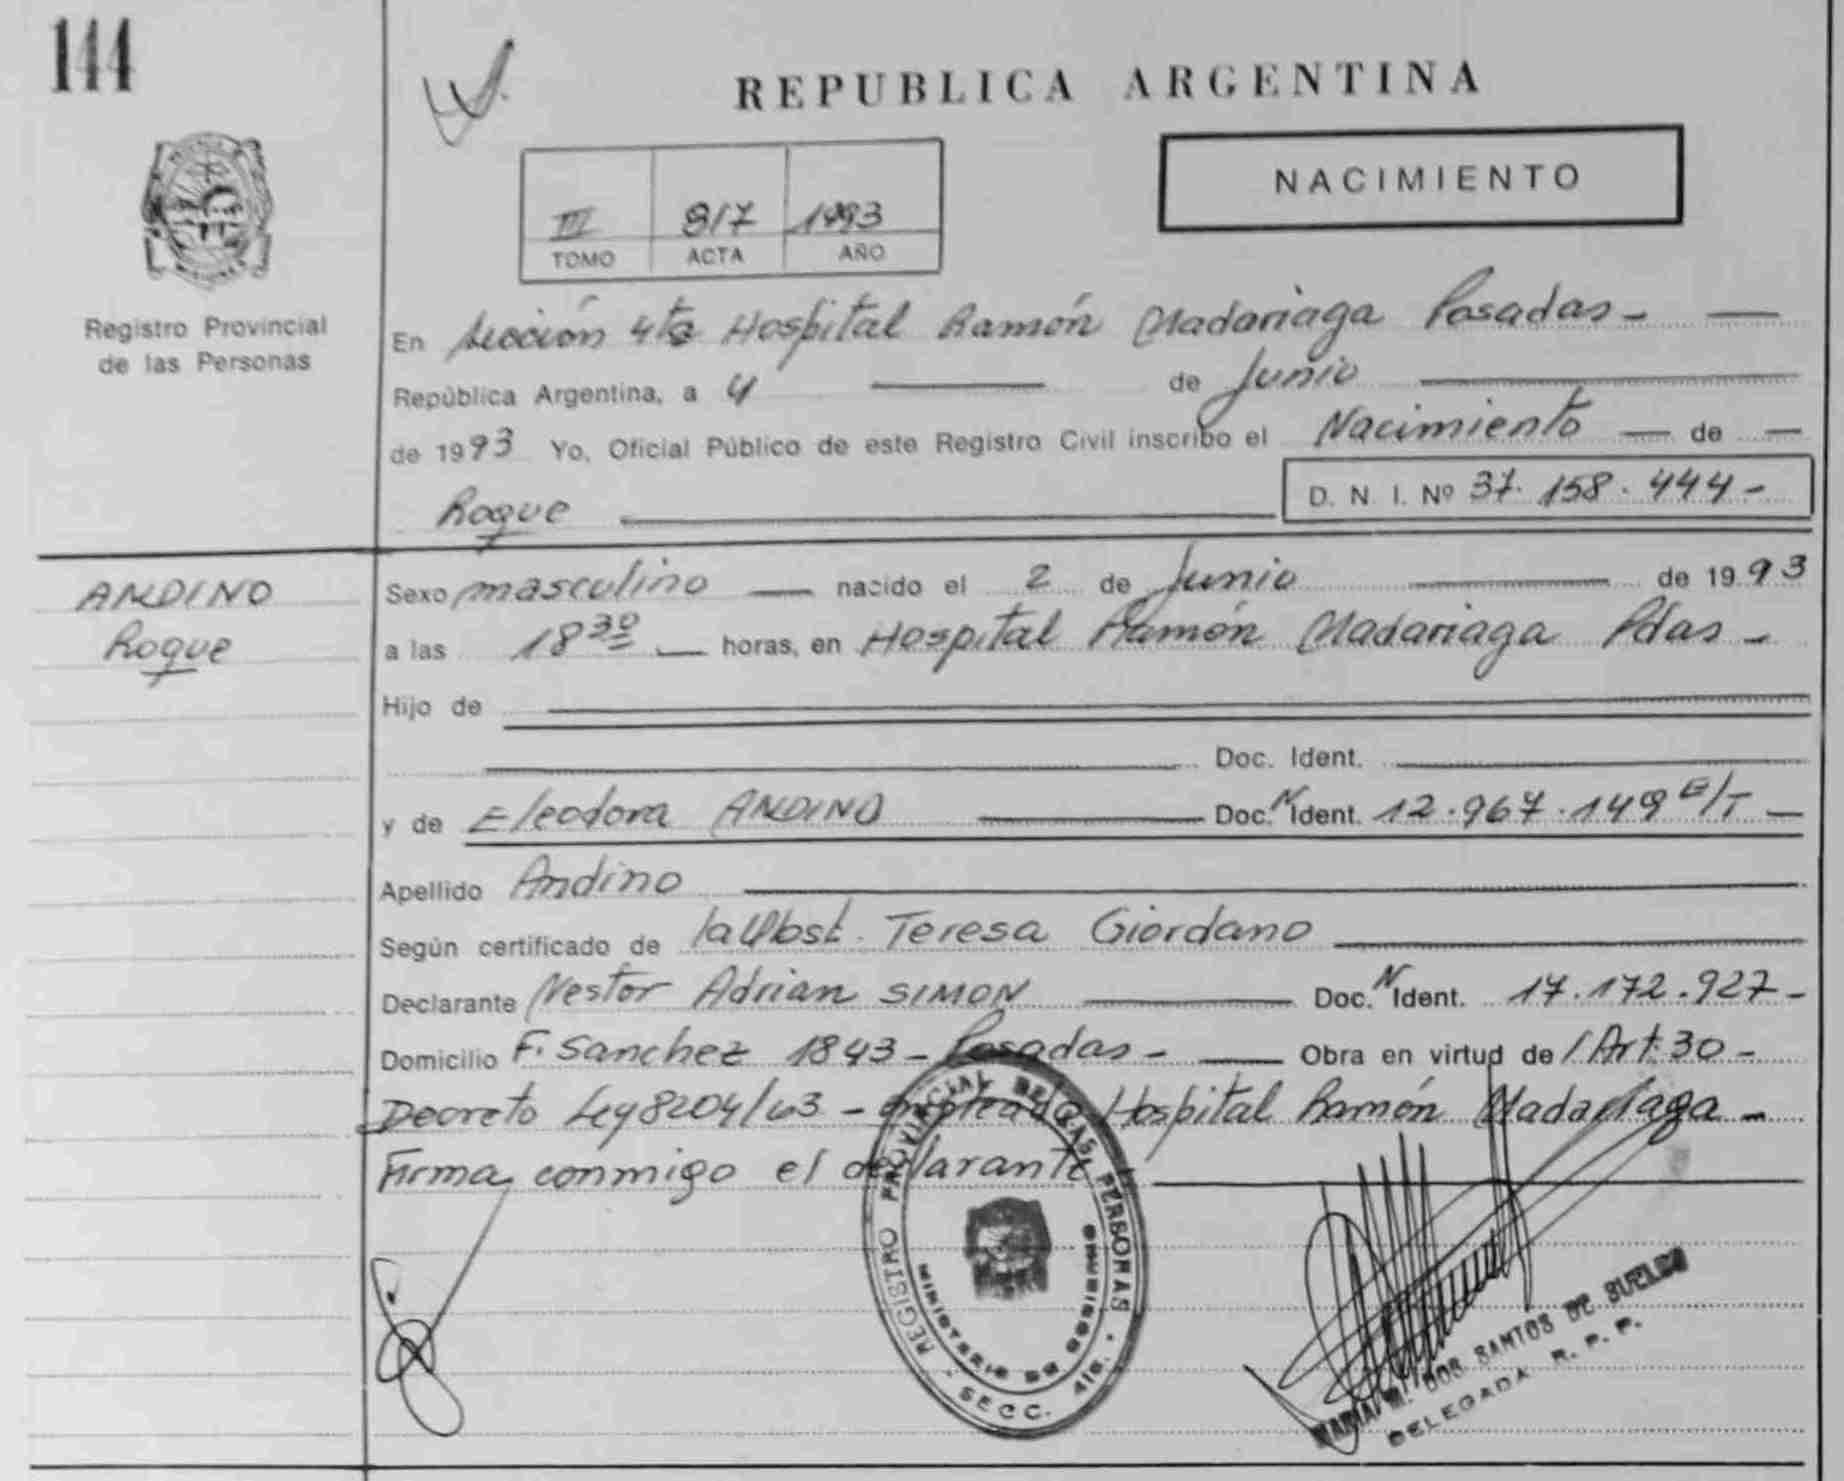 144
REPUBLICA ARGENTINA
NACIMIENTO
III 817 1993
TOMO ACTA AÑO
Registro Provincial
de las Personas
En Sección 4ta Hospital Ramón Madariaga Posadas -
República Argentina, a 4 de Junio
de 1993 Yo, Oficial Público de este Registro Civil inscribo el Nacimiento de
Roque D. N. I. Nº 37.158.444-
ANDINO
Roque
Sexo masculino nacido el 2 de Junio de 1993
a las 18 30 horas, en Hospital Ramón Madariaga Pdas -
Hijo de
Doc. Ident.
y de Eleodora ANDINO Doc. N Ident. 12.967.149 E/T
Apellido Andino
Según certificado de la Obst. Teresa Giordano
Declarante Nestor Adrian SIMON Doc. N Ident. 17.172.927-
Domicilio F. Sanchez 1843 - Posadas - Obra en virtud de /Art.30-
Decreto Ley 8204/63 - empleado Hospital Ramón Madariaga -
Firma conmigo el declarante
REGISTRO PROVINCIAL DE LAS PERSONAS
MINISTERIO DE GOBIERNO
SECC. 4ta.
MARIA M. DOS SANTOS DE BUELDO
DELEGADA R. P. P.